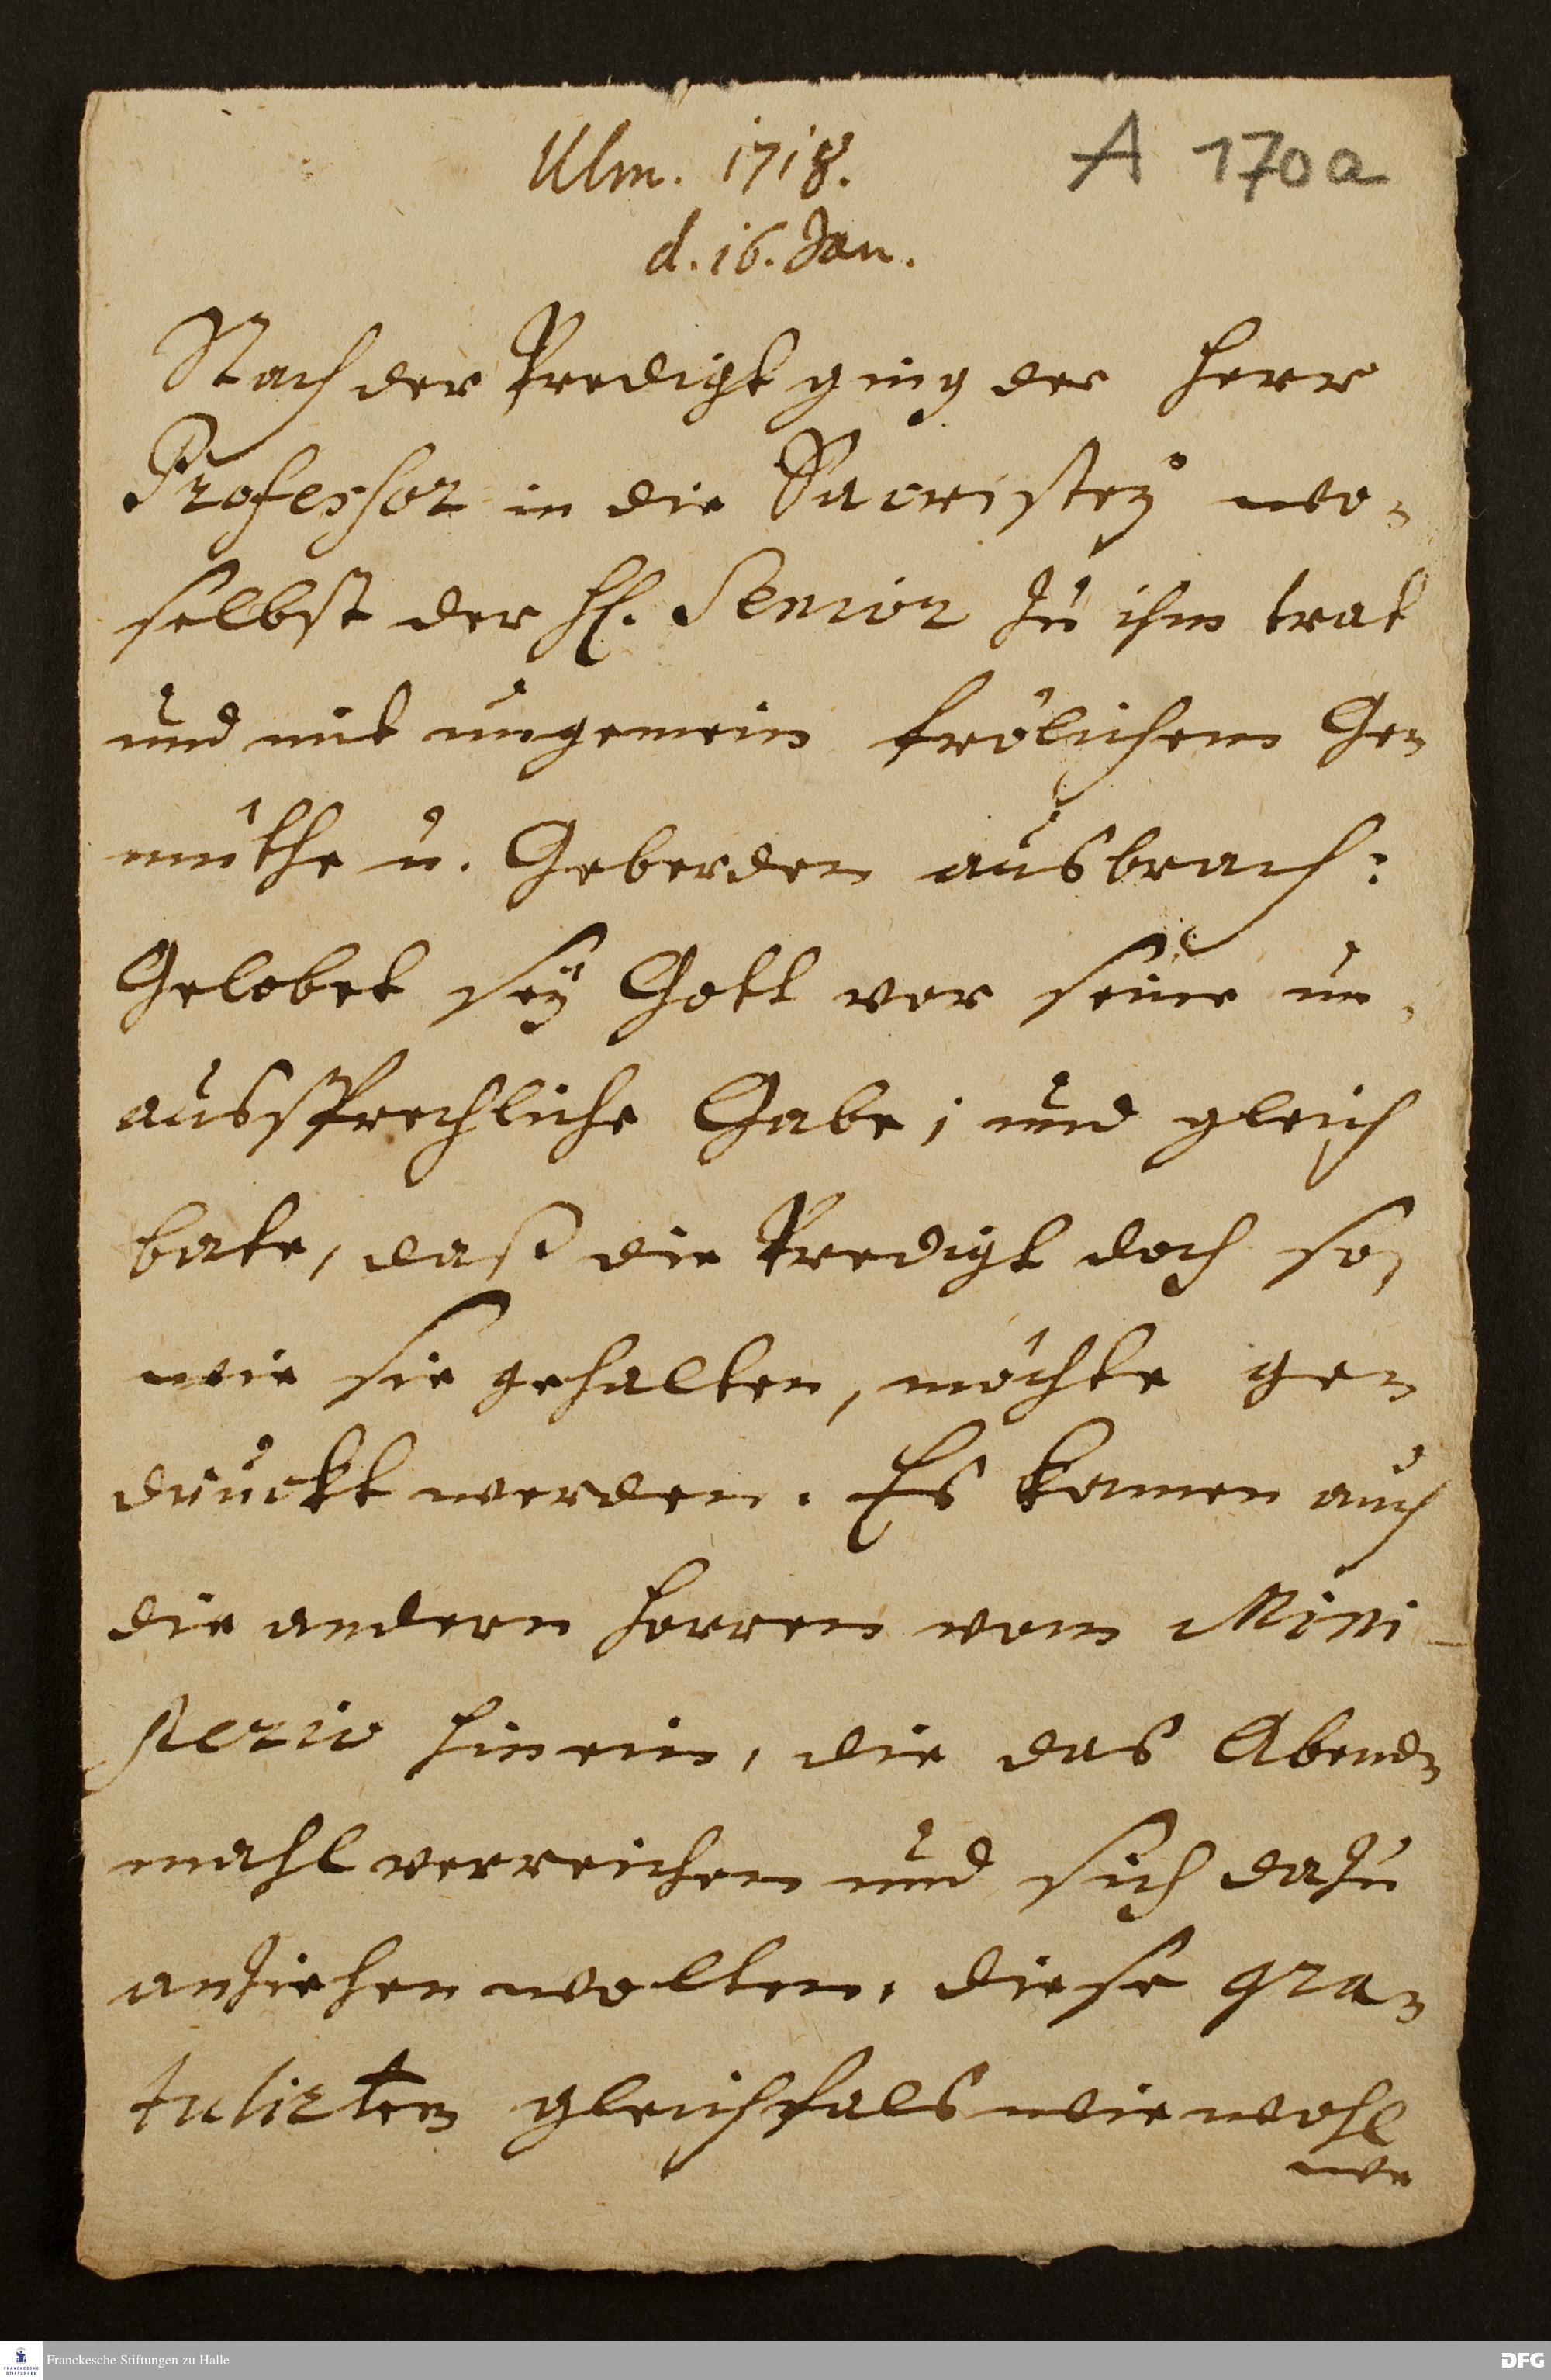 Ulm. 1718.
A 170a
d. 16. Jan.
Nach der Predigt ging der Herr
Professor in die Sacristey wo-
selbst der H. Senior zu ihm trat
und mit ungemein frölichem Ge-
müthe u. Geberden ausbrach:
Gelobet sey Gott vor seine un-
aussprechliche Gabe; und gleich
bate, daß die Predigt doch so,
wie sie gehalten, möchte ge-
druckt werden. Es kamen auch
die andern Herren vom Mini-
sterio hinein, die das Abend-
mahl verreichen und sich dazu
anziehen wolten, diese gra-
tulirten gleichfals wiewohl
we
FRANCKESCHE STIFTUNGEN
Franckesche Stiftungen zu Halle
DFG